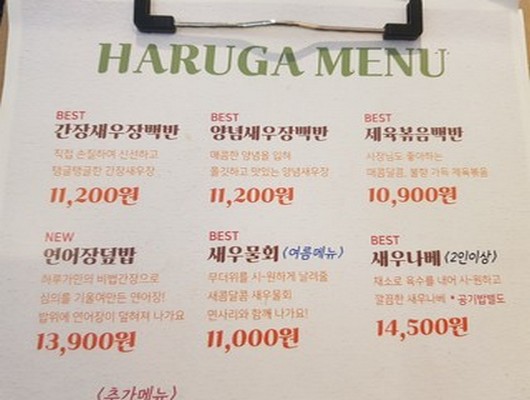 HARUGA MENU
BEST
간장새우장백반
직접 손질하여 신선하고
탱글탱글한 간장새우장
11,200원
BEST
양념새우장백반
매콤한 양념을 입혀
통깃하고 맛있는 양념새우장
11,200원
BEST
제육볶음백반
사장님도 좋아하는
매콤달콤, 불향 가득 제육볶음
10,900원
NEW
연어장덮밥
하루가만의 비법간장으로
심의를 기울여만든 연어장!
밥위에 연어장이 덮혀져 나가요
13,900원
BEST
새우물회 (여름메뉴)
무더위를 시-원하게 날려줄
새콤달콤 새우물회
면사리와 함께 나가요!
11,000원
BEST
새우나베 (2인이상)
채소로 육수를 내어 시-원하고
깔끔한 새우나베 *공기밥별도
14,500원
(추가메뉴)